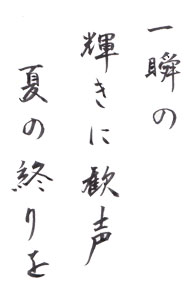 一瞬の
輝きに歓声
夏の終りを